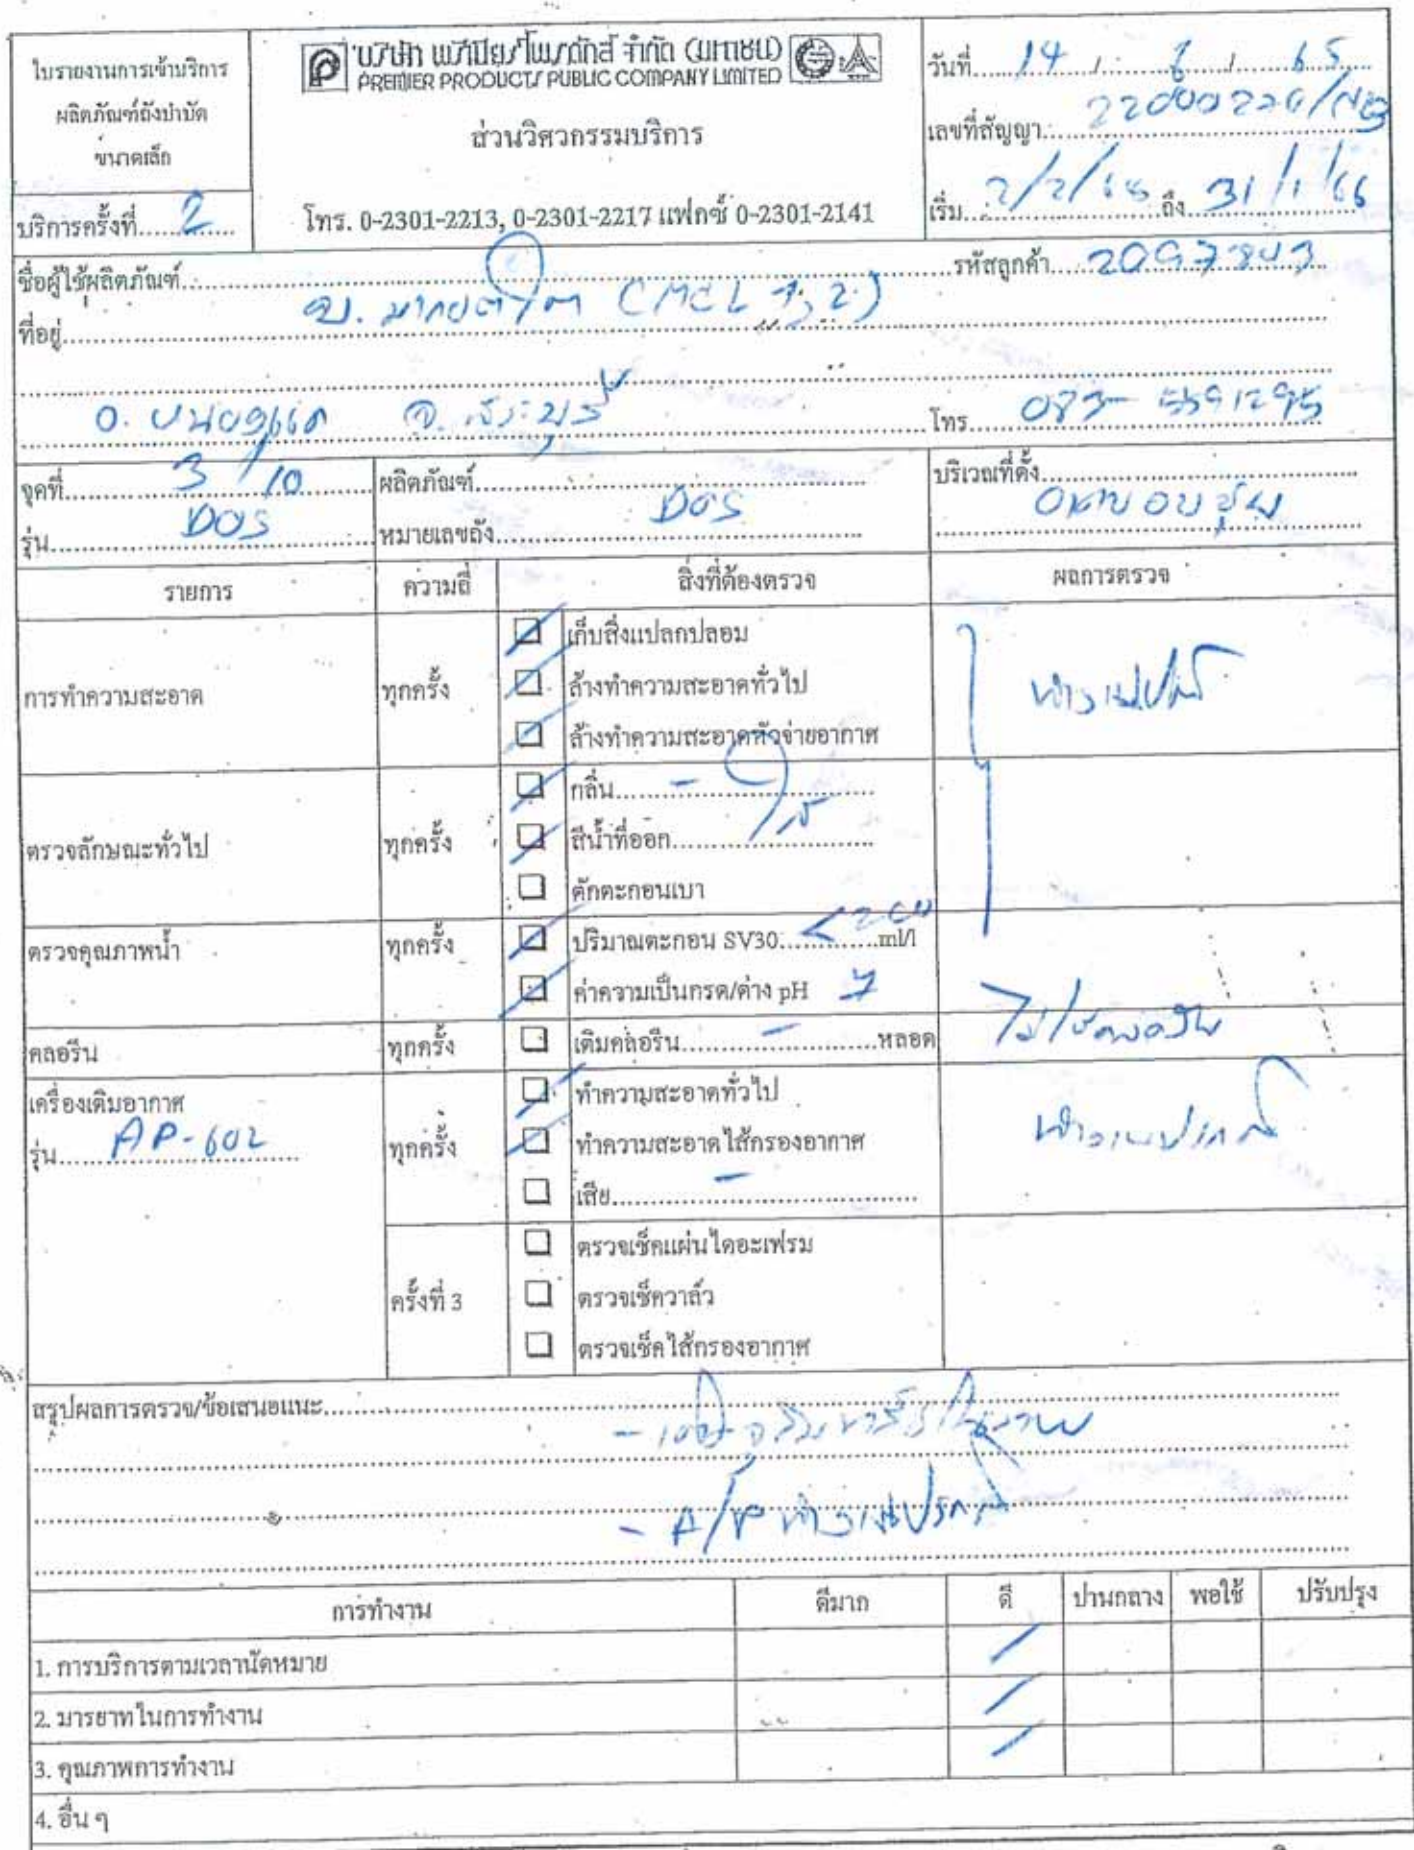 ใบรายงานการเข้าบริการ
ผลิตภัณฑ์ถังบำบัด
ขนาดเล็ก
บริการครั้งที่ 2
บริษัท พรีเมียร์ โพรดักส์ จำกัด (มหาชน)
PREMIER PRODUCTS PUBLIC COMPANY LIMITED
ส่วนวิศวกรรมบริการ
โทร. 0-2301-2213, 0-2301-2217 แฟกซ์ 0-2301-2141
วันที่ 14 / 6 / 65
เลขที่สัญญา
เริ่ม 2/2/65 ถึง 31/1/66
ชื่อผู้ใช้ผลิตภัณฑ์ รหัสลูกค้า
ที่อยู่
อ. หนองแค จ. สระบุรี โทร.
จุดที่ 3/10 ผลิตภัณฑ์ DOS บริเวณที่ตั้ง
รุ่น DOS หมายเลขถัง
รายการ ความถี่ สิ่งที่ต้องตรวจ ผลการตรวจ
การทำความสะอาด ทุกครั้ง เก็บสิ่งแปลกปลอม
ล้างทำความสะอาดทั่วไป ทำงานปกติ
ล้างทำความสะอาดหัวจ่ายอากาศ
ตรวจลักษณะทั่วไป ทุกครั้ง กลิ่น -
สีน้ำที่ออก ใส
ตักตะกอนเบา
ตรวจคุณภาพน้ำ ทุกครั้ง ปริมาณตะกอน SV30 <200 ml/l
ค่าความเป็นกรด/ด่าง pH 7
คลอรีน ทุกครั้ง เติมคลอรีน - หลอด ไม่ใช้คลอรีน
เครื่องเติมอากาศ ทุกครั้ง ทำความสะอาดทั่วไป
รุ่น AP-602 ทำความสะอาดไส้กรองอากาศ ทำงานปกติ
เสีย -
ครั้งที่ 3 ตรวจเช็คแผ่นไดอะเฟรม
ตรวจเช็ควาล์ว
ตรวจเช็คไส้กรองอากาศ
สรุปผลการตรวจ/ข้อเสนอแนะ
- A/P ทำงานปรกติ
การทำงาน ดีมาก ดี ปานกลาง พอใช้ ปรับปรุง
1. การบริการตามเวลานัดหมาย /
2. มารยาทในการทำงาน /
3. คุณภาพการทำงาน /
4. อื่น ๆ